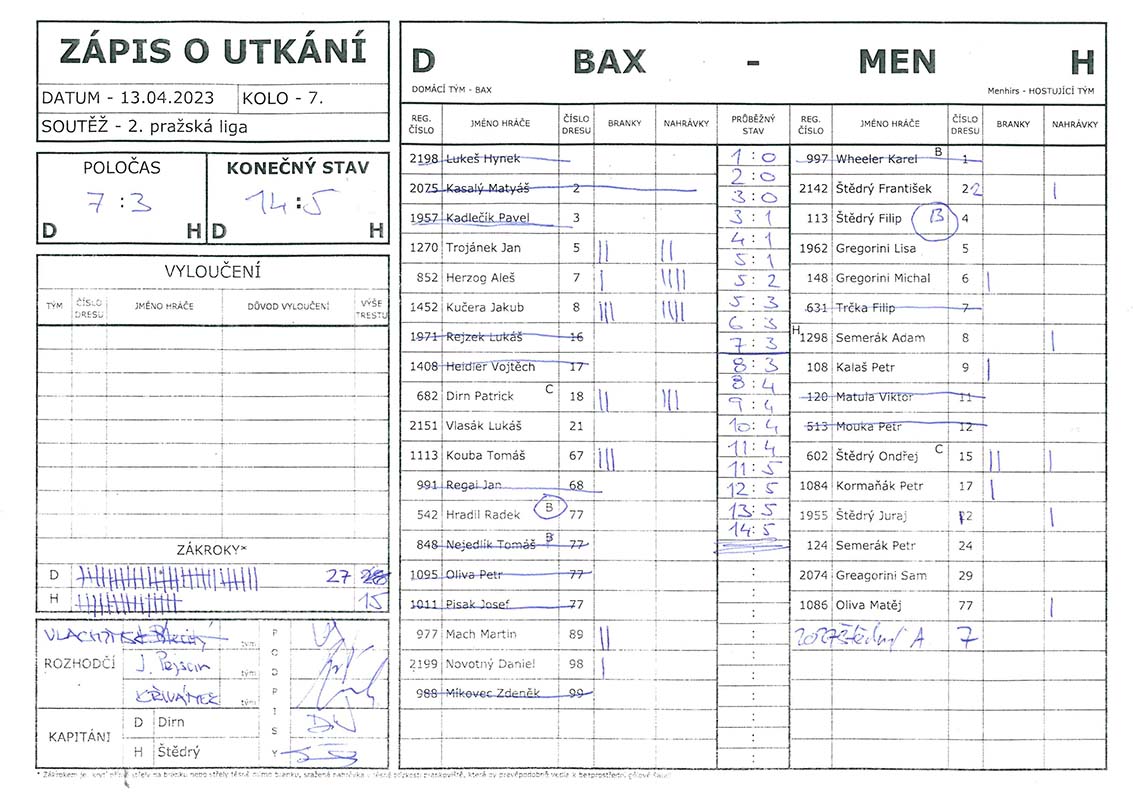 ZÁPIS O UTKÁNÍ
DATUM - 13.04.2023 KOLO - 7.
SOUTĚŽ - 2. pražská liga
POLOČAS KONEČNÝ STAV
7 : 3 14 : 5
D H D H
VYLOUČENÍ
TÝM ČÍSLO DRESU JMÉNO HRÁČE DŮVOD VYLOUČENÍ VÝŠE TRESTU
ZÁKROKY*
D 27 28
H 15
ROZHODČÍ
J. Pejscin
KŘIVÁNEK
PODPISY
KAPITÁNI
D Dirn
H Štědrý
D BAX - MEN H
DOMÁCÍ TÝM - BAX Menhirs - HOSTUJÍCÍ TÝM
REG. ČÍSLO JMÉNO HRÁČE ČÍSLO DRESU BRANKY NAHRÁVKY PRŮBĚŽNÝ STAV REG. ČÍSLO JMÉNO HRÁČE ČÍSLO DRESU BRANKY NAHRÁVKY
2198 Lukeš Hynek
2075 Kasalý Matyáš 2
1957 Kadlečík Pavel 3
1270 Trojánek Jan 5 || ||
852 Herzog Aleš 7 | ||||
1452 Kučera Jakub 8 ||| ||||
1971 Rejzek Lukáš 16
1408 Heidler Vojtěch 17
682 Dirn Patrick C 18 || |||
2151 Vlasák Lukáš 21
1113 Kouba Tomáš 67 |||
991 Regal Jan 68
542 Hradil Radek B 77
848 Nejedlík Tomáš B 77
1095 Oliva Petr 77
1011 Pisak Josef 77
977 Mach Martin 89 ||
2199 Novotný Daniel 98 |
988 Míkovec Zdeněk 99
1 : 0
2 : 0
3 : 0
3 : 1
4 : 1
5 : 1
5 : 2
5 : 3
6 : 3
7 : 3
8 : 3
8 : 4
9 : 4
10 : 4
11 : 4
11 : 5
12 : 5
13 : 5
14 : 5
997 Wheeler Karel B 1
2142 Štědrý František 22 |
113 Štědrý Filip B 4
1962 Gregorini Lisa 5
148 Gregorini Michal 6 |
631 Trčka Filip 7
H 1298 Semerák Adam 8 |
108 Kalaš Petr 9 |
120 Matula Viktor 11
513 Mouka Petr 12
602 Štědrý Ondřej C 15 || |
1084 Kormaňák Petr 17 |
1955 Štědrý Juraj 22 |
124 Semerák Petr 24
2074 Greagorini Sam 29
1086 Oliva Matěj 77 |
2027 Štědrý A 7